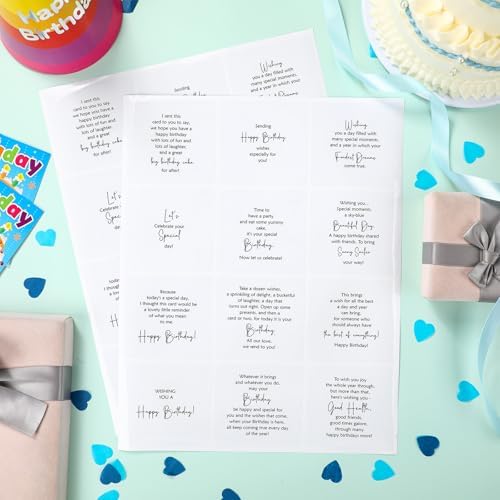 Happy
Birthday
day
day
Sending
Wishing
you a day filled with
many special moments,
and a year in which your
I sent this
card to you to say,
we hope you have a
happy birthday
with lots of fun
and lots of laughter
and a great
big birthday cake
for after!
Let's
Celebrate your
Special
day!
I sent this
card to you to say,
we hope you have a
happy birthday
with lots of fun
and lots of laughter
and a great
big birthday cake
for after!
Sending
Happy Birthday
wishes
especially for you!
Wishing
you a day filled with
many special moments,
and a year in which your
Fondest Dreams
come true.
Let's
Celebrate your
Special
day!
Time to
have a party
and eat some yummy
cake,
it's your special
Birthday.
Now let us celebrate!
Wishing you...
Special moments,
a sky-blue
Beautiful Day.
A happy birthday shared
with friends. To bring
Sunny Smiles
your way!
Because
today's a special day,
I thought this card would be
a lovely little reminder
of what you mean
to me.
Happy Birthday!
Take a dozen wishes,
a sprinkling of delight, a bucketful
of laughter, a day that
turns out right. Open up some
presents, and then a
card or two, for today it is your
Birthday.
All our love,
we send to you!
This brings
a wish for all the best
a day and year
can bring,
for someone who
should always have
the best of everything!
Happy Birthday!
WISHING
YOU A
Happy Birthday!
Whatever it brings
and whatever you do,
may your
Birthday
be happy and special for
you and the wishes that come
all keep coming true every day
of the year!
To wish you joy
the whole year through,
but more than that,
here's wishing you...
Good Health,
good friends,
good times galore,
through many
happy birthdays more!